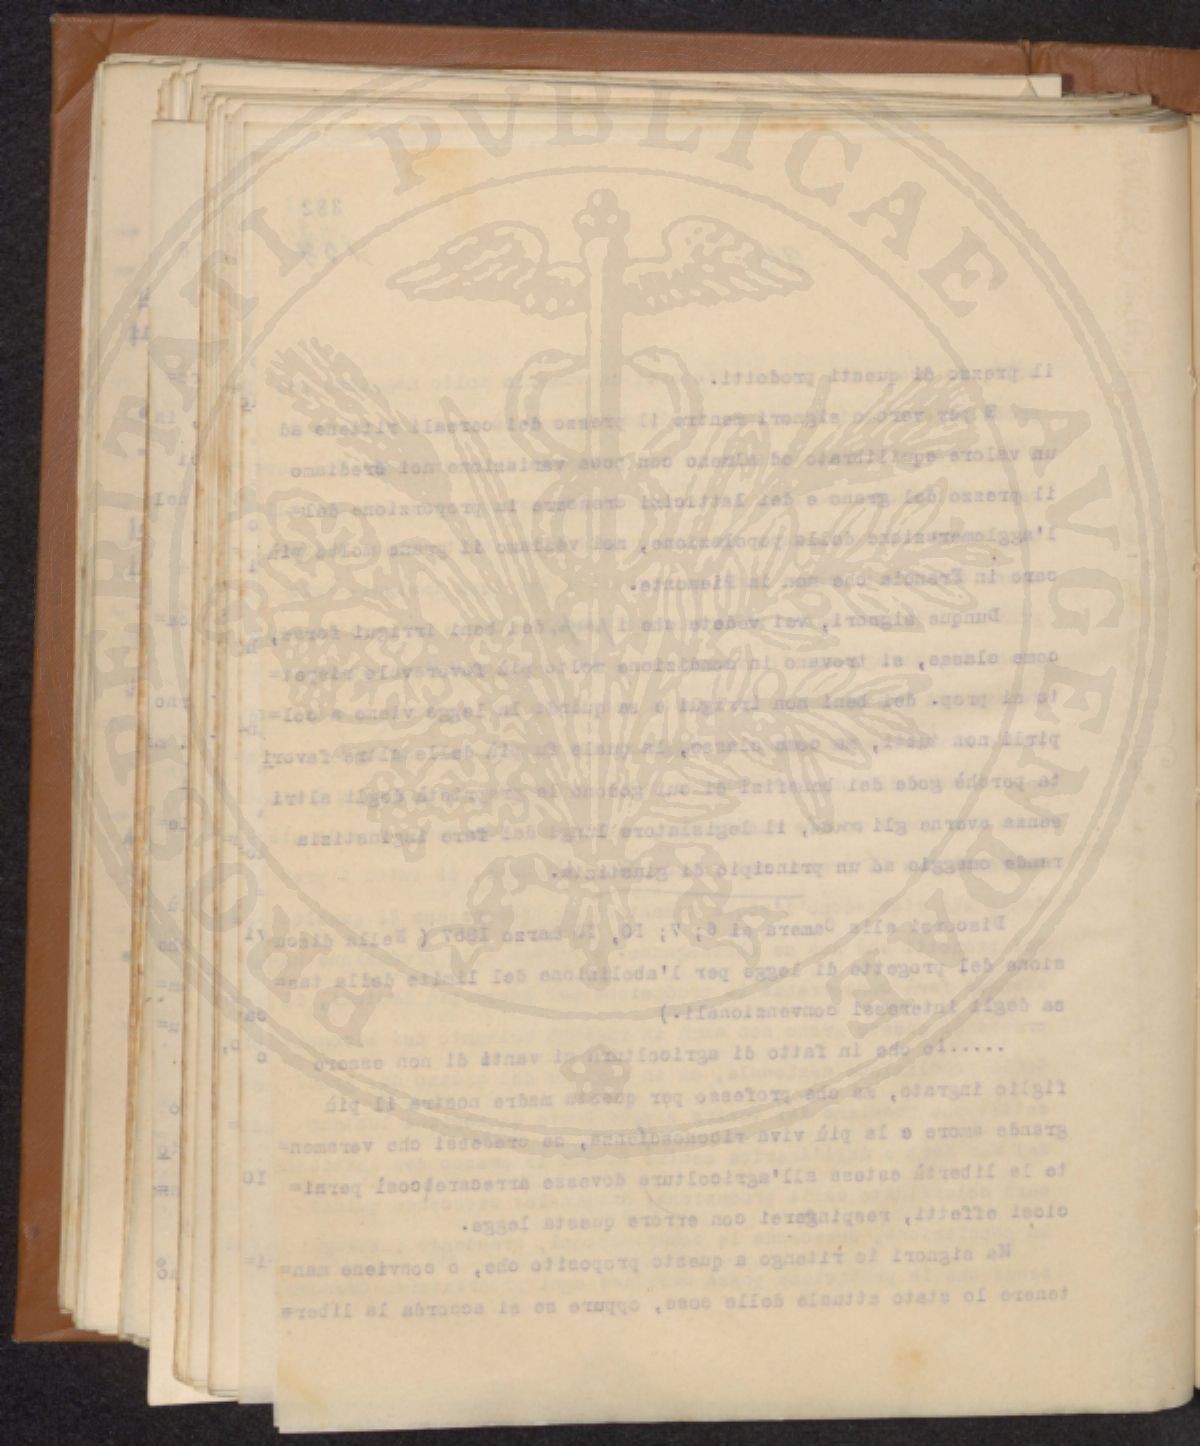 PROSPERITATI PVBLICAE AVGENDAE
382
il prezzo di questi prodotti.
E per vero o signori mentre il prezzo dei cereali ritiene ad
un valore equilibrato od almeno con poca variazione noi crediamo
il prezzo del grano e dei latticini crescere in proporzione del=
l'agglomerazione della popolazione, noi vediamo il grano molto più
caro in Francia che non in Piemonte.
Dunque signori, voi vedete che i dei beni irrigui forse,
come classe, si trovano in condizione molto più favorevole rispet=
to ai prop. dei beni non irrigui e se quindi la legge viene a col=
pirli non tutti, ma come classe, la quale fu più delle altre favori
ta perchè gode dei benefizi di cui godono le proprietà degli altri
senza averne gli oneri, il legislatore lungi dal fare ingiustizia
rende omaggio ad un principio di giustizia.
Discorsi alla Camera ai 6; 7; IO, marzo 1857 ( Nella discus
sione del progetto di legge per l'abolizione del limite della tas=
sa degli interessi convenzionali.)
.....Io che in fatto di agricoltura mi vanti di non essere
figlio ingrato, ma che professo per questa madre nostra il più
grande amore e la più viva riconoscenza, se credessi che veramen=
te la libertà estesa all'agricoltura dovesse arrecare così perni=
ciosi effetti, respingerei con errore questa legge.
Ma signori io ritengo a questo proposito che, o conviene man=
tenere lo stato attuale delle cose, oppure se si accorda la liber=